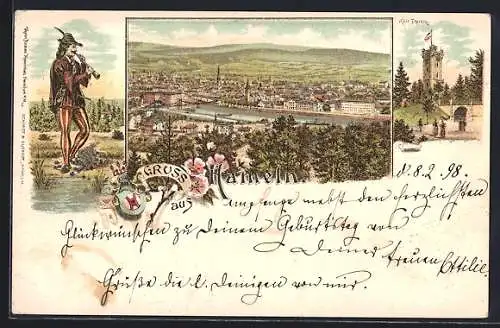 Klüt Thurm
GRUSS
aus
Hameln
d. 8.2.98.
Empfange nebst den herzlichsten
Glückwünschen zu Deinem Geburtstag von
Deiner
treuen Ottilie.
Grüße die l. Deinigen von mir.